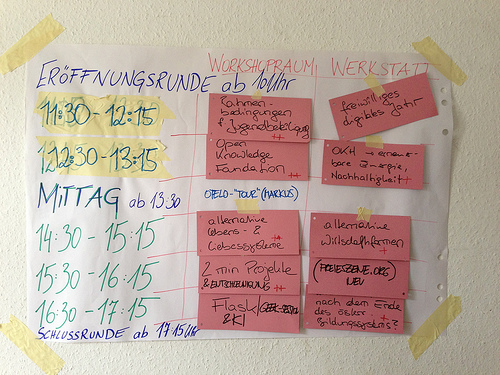 WORKSHOPRAUM WERKSTATT
ERÖFFNUNGSRUNDE ab 10Uhr
11:30 - 12:15
Rahmen-
bedingungen
f. Jugendbeteiligung
++
freiwilliges
digitales Jahr
12:30 - 13:15
Open
Knowledge
Foundation ++
OKH → erneuer-
bare Energie,
Nachhaltigkeit +
MITTAG ab 13:30
OTELO-"TOUR" (MARKUS)
14:30 - 15:15
alternative
Lebens- &
Liebessysteme
++
alternative
Wirtschaftformen
+
15:30 - 16:15
2 min Projekte
& ENTSCHEINUNG ++
(FREIESZENE.ORG
NEU)
16:30 - 17:15
Flask/
& KI
nach dem Ende
des österr.
Bildungssystems?
+
SCHLUSSRUNDE ab 17:15 Uhr